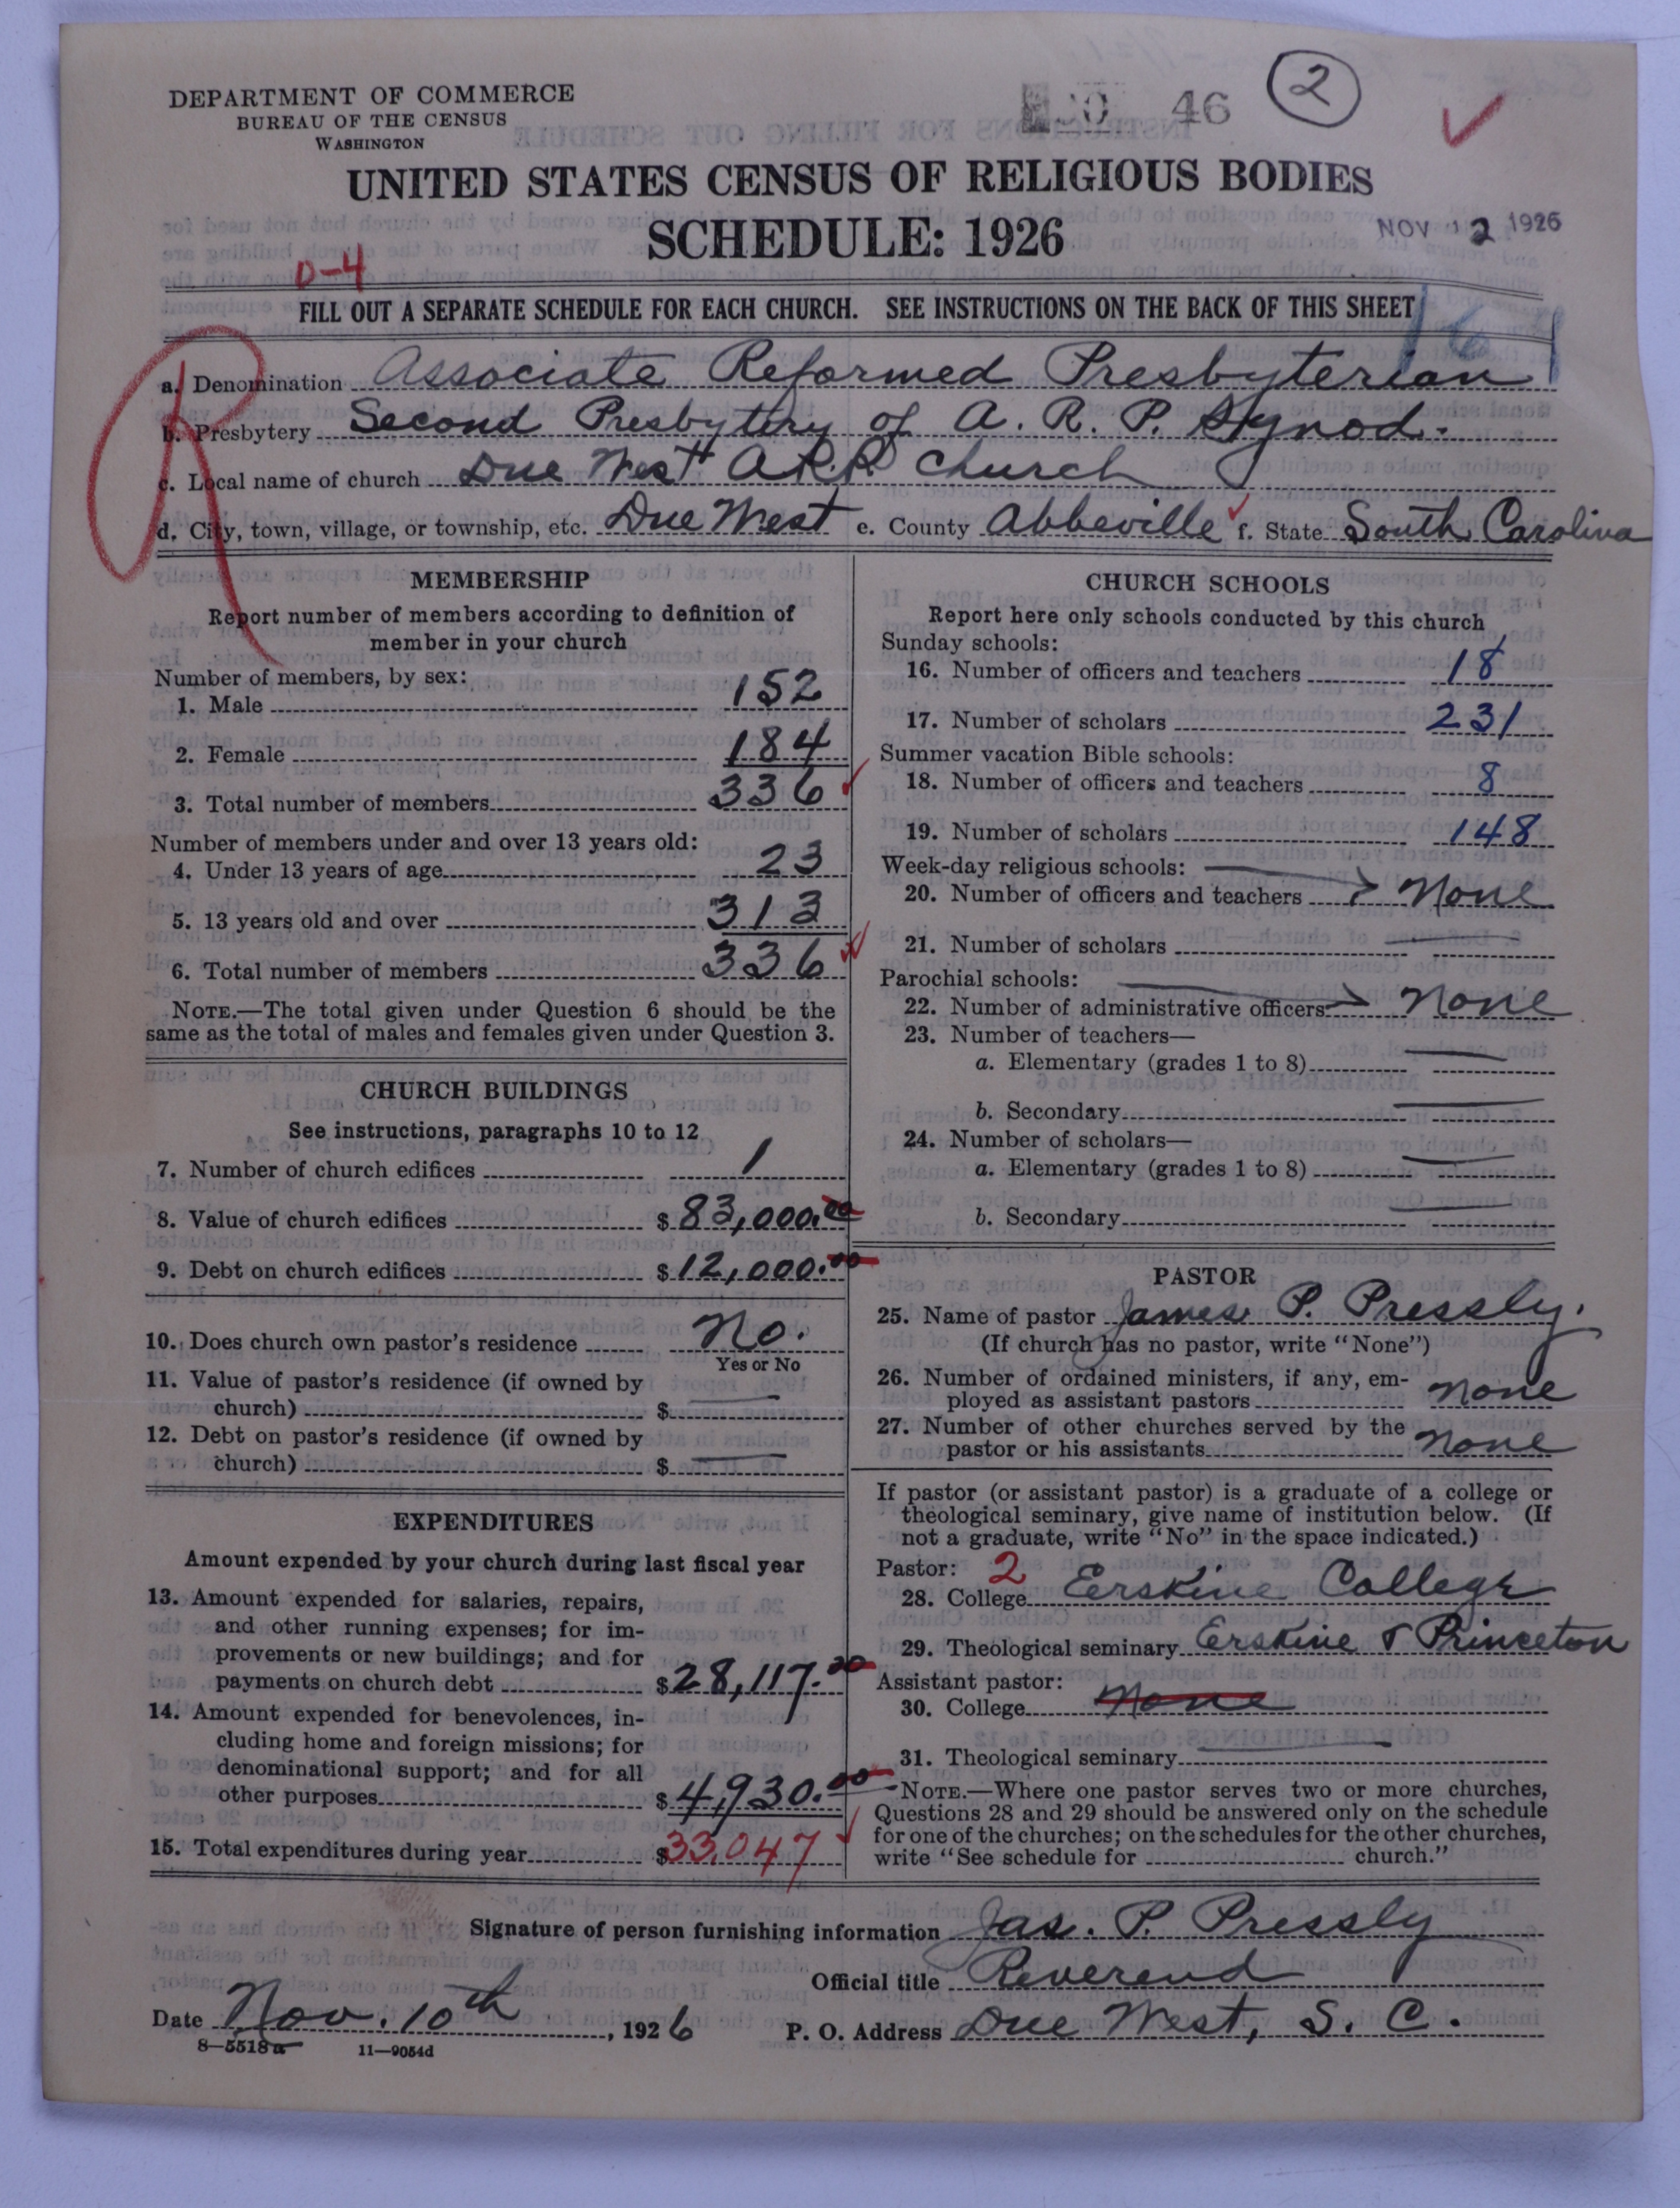 DEPARTMENT OF COMMERCE
BUREAU OF THE CENSUS
WASHINGTON
46
2
UNITED STATES CENSUS OF RELIGIOUS BODIES
SCHEDULE: 1926
NOV 12 1926
0-4
FILL OUT A SEPARATE SCHEDULE FOR EACH CHURCH. SEE INSTRUCTIONS ON THE BACK OF THIS SHEET
R
a. Denomination Associate Reformed Presbyterian
b. Presbytery Second Presbytery of A. R. P. Synod.
c. Local name of church Due West A.R.P. Church
d. City, town, village, or township, etc. Due West e. County Abbeville f. State South Carolina
MEMBERSHIP
Report number of members according to definition of
member in your church
Number of members, by sex:
1. Male 152
2. Female 184
3. Total number of members 336
Number of members under and over 13 years old:
4. Under 13 years of age 23
5. 13 years old and over 313
6. Total number of members 336
NOTE.—The total given under Question 6 should be the
same as the total of males and females given under Question 3.
CHURCH BUILDINGS
See instructions, paragraphs 10 to 12
7. Number of church edifices 1
8. Value of church edifices $ 83,000.00
9. Debt on church edifices $ 12,000.00
10. Does church own pastor's residence No.
Yes or No
11. Value of pastor's residence (if owned by
church) $
12. Debt on pastor's residence (if owned by
church) $
EXPENDITURES
Amount expended by your church during last fiscal year
13. Amount expended for salaries, repairs,
and other running expenses; for im-
provements or new buildings; and for
payments on church debt $ 28,117.00
14. Amount expended for benevolences, in-
cluding home and foreign missions; for
denominational support; and for all
other purposes $ 4,930.00
15. Total expenditures during year $ 33,047
CHURCH SCHOOLS
Report here only schools conducted by this church
Sunday schools:
16. Number of officers and teachers 18
17. Number of scholars 231
Summer vacation Bible schools:
18. Number of officers and teachers 8
19. Number of scholars 148
Week-day religious schools:
20. Number of officers and teachers None
21. Number of scholars
Parochial schools:
22. Number of administrative officers None
23. Number of teachers—
a. Elementary (grades 1 to 8)
b. Secondary
24. Number of scholars—
a. Elementary (grades 1 to 8)
b. Secondary
PASTOR
25. Name of pastor James P. Pressly.
(If church has no pastor, write "None")
26. Number of ordained ministers, if any, em-
ployed as assistant pastors None
27. Number of other churches served by the
pastor or his assistants None
If pastor (or assistant pastor) is a graduate of a college or
theological seminary, give name of institution below. (If
not a graduate, write "No" in the space indicated.)
Pastor: 2
28. College Erskine College
29. Theological seminary Erskine & Princeton
Assistant pastor:
30. College None
31. Theological seminary
NOTE.—Where one pastor serves two or more churches,
Questions 28 and 29 should be answered only on the schedule
for one of the churches; on the schedules for the other churches,
write "See schedule for church."
Signature of person furnishing information Jas. P. Pressly
Official title Reverend
Date Nov. 10th, 1926 P. O. Address Due West, S. C.
8—5518a 11—9054d